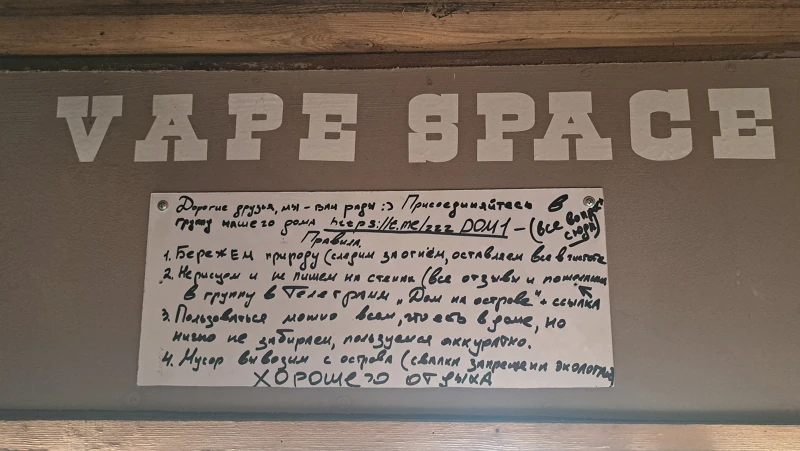 VAPE SPACE
Дорогие друзья, мы - вам рады :) Присоединяйтесь в
группу нашего дома https://t.me/zzz DOM1 - (все вопросы
сюда)
Правила
1. Бережём природу (следим за огнём, оставляем всё в чистоте
2. Не рисуем и не пишем на стенах (все отзывы и пожелания
в группу в Телеграмм „Дом на острове" ссылка
3. Пользоваться можно всем, что есть в доме, но
ничего не забираем, пользуемся аккуратно.
4. Мусор вывозим с острова (свалки запрещены экологами)
ХОРОШЕГО ОТДЫХА